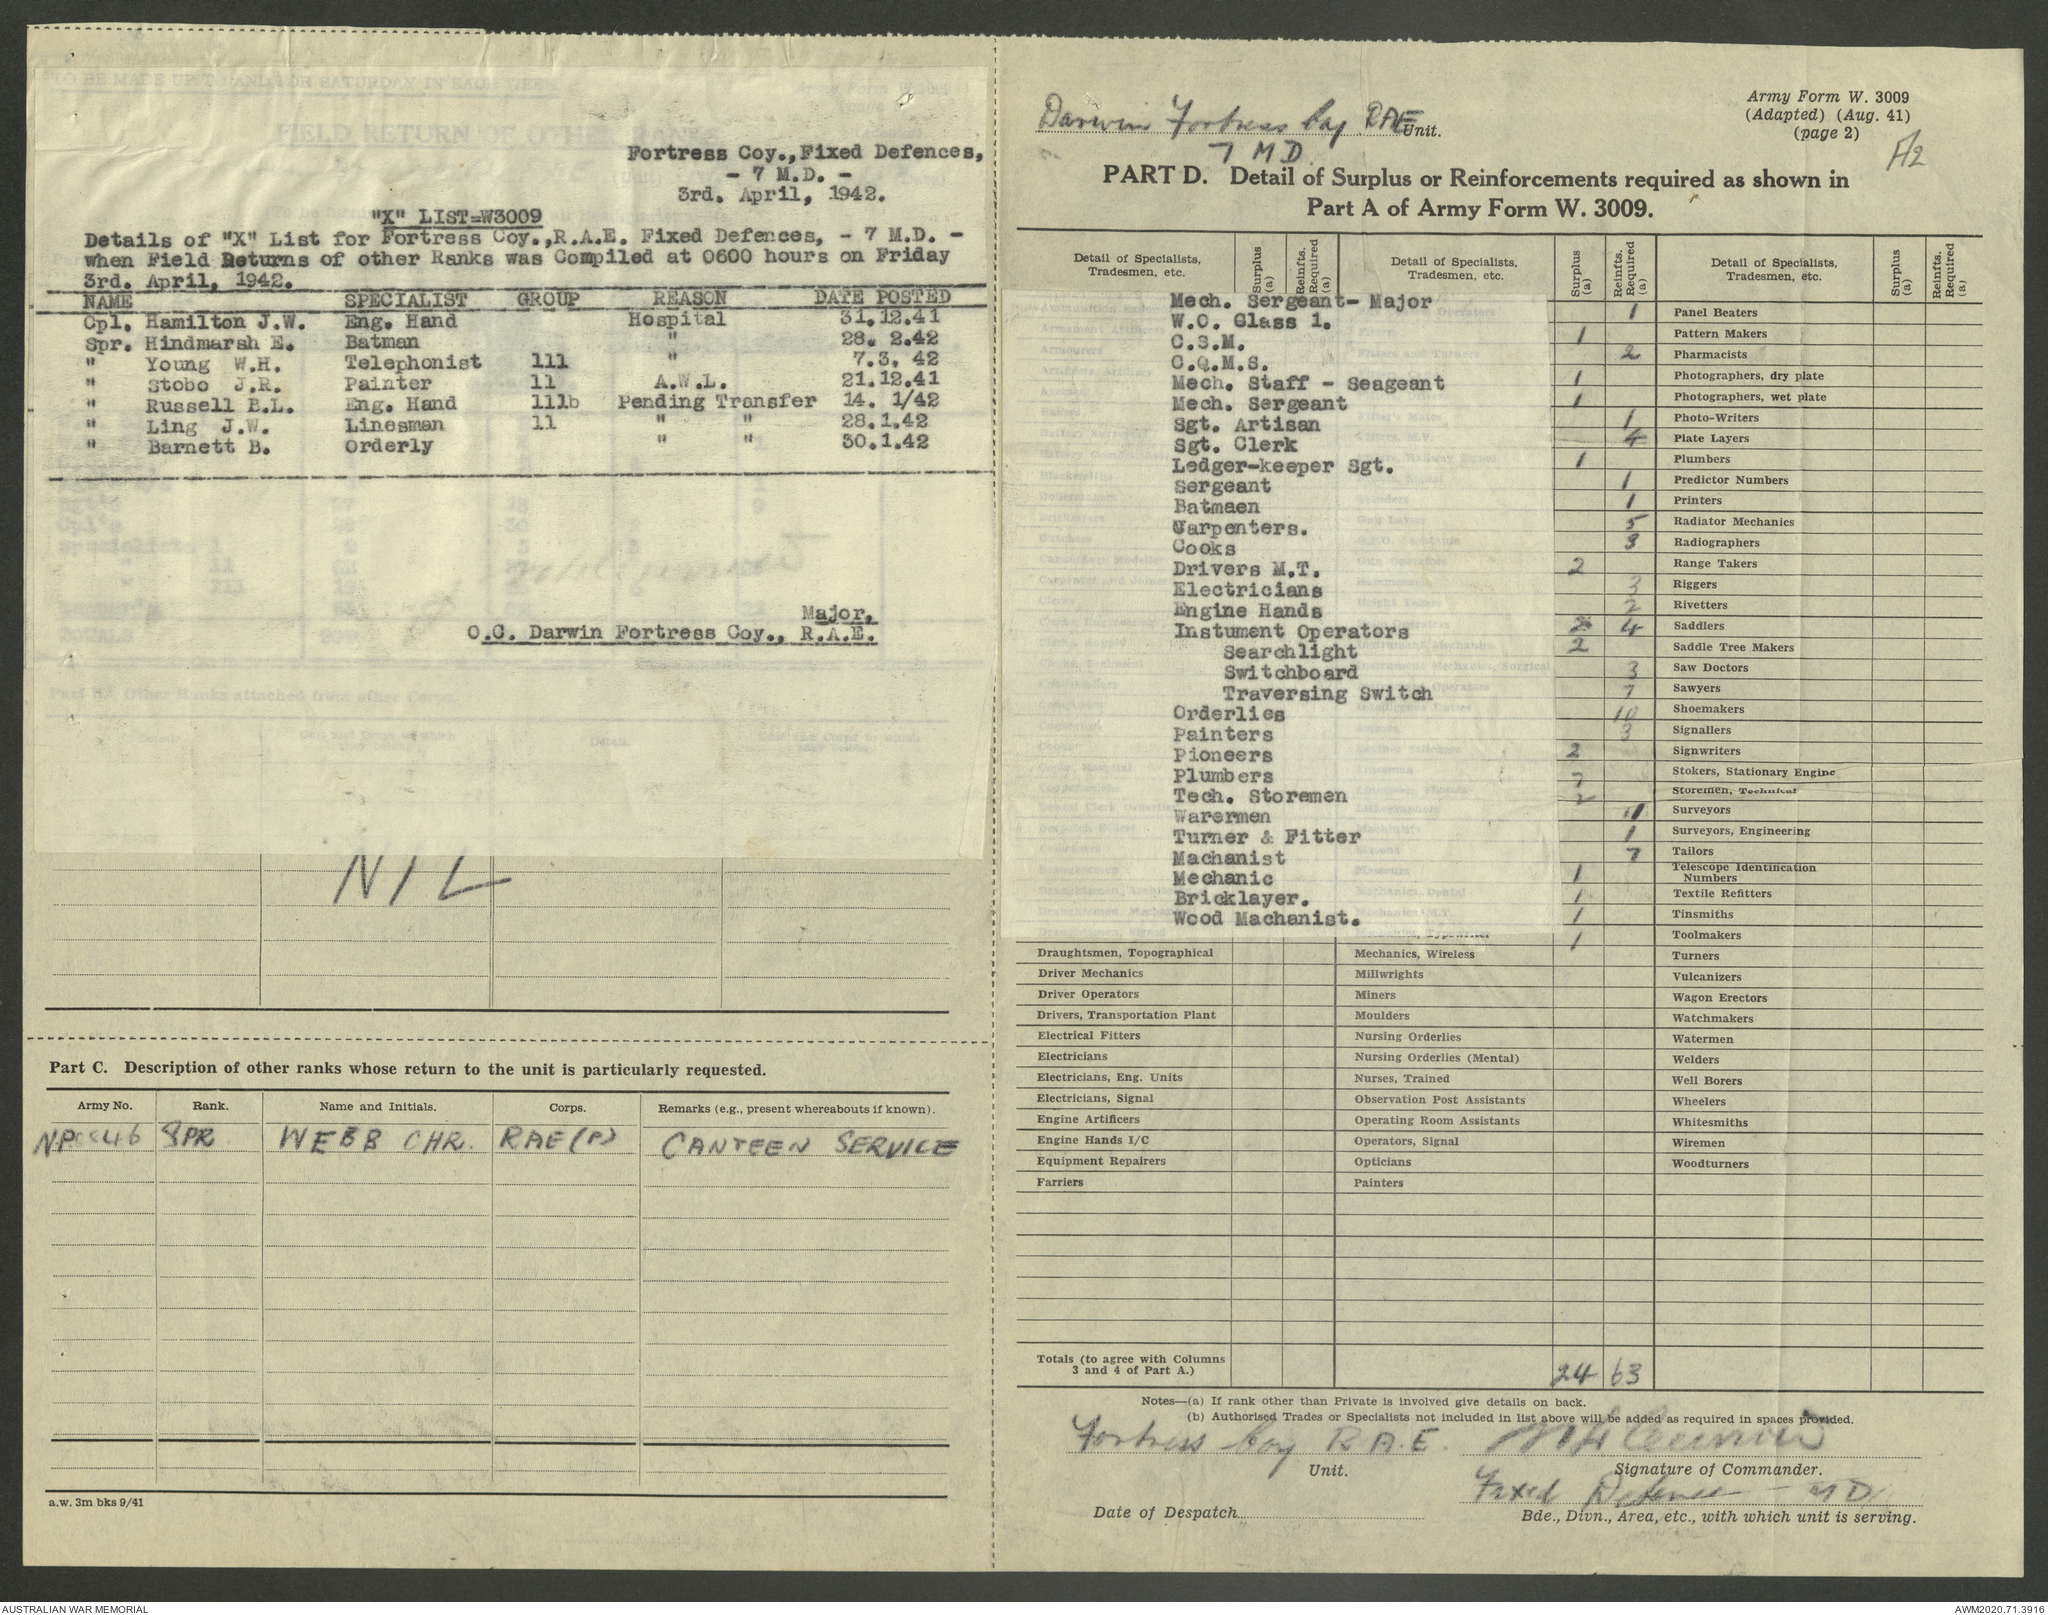 Fortress Coy.,Fixed Defences,
- 7 M.D. -
3rd. April, 1942.
"X" LIST=W3009
Details of "X" List for Fortress Coy.,R.A.E. Fixed Defences, - 7 M.D. -
when Field Returns of other Ranks was Compiled at 0600 hours on Friday
3rd. April, 1942.
NAME SPECIALIST GROUP REASON DATE POSTED
Cpl. Hamilton J.W. Eng. Hand Hospital 31.12.41
Spr. Hindmarsh E. Batman " 28. 2.42
" Young W.H. Telephonist 111 " 7.3. 42
" Stobo J.R. Painter 11 A.W.L. 21.12.41
" Russell B.L. Eng. Hand 111b Pending Transfer 14. 1/42
" Ling J.W. Linesman 11 " " 28.1.42
" Barnett B. Orderly " " 30.1.42
Major,
O.C. Darwin Fortress Coy., R.A.E.
NIL
Part C. Description of other ranks whose return to the unit is particularly requested.
Army No. Rank. Name and Initials. Corps. Remarks (e.g., present whereabouts if known).
SPR WEBB CHR. RAE(P) CANTEEN SERVICE
a.w. 3m bks 9/41
Army Form W. 3009
(Adapted) (Aug. 41)
(page 2)
A2
Darwin Fortress Coy RAE Unit.
7 M D.
PART D. Detail of Surplus or Reinforcements required as shown in
Part A of Army Form W. 3009.
Detail of Specialists, Tradesmen, etc. Surplus (a) Reinfts. Required (a) Detail of Specialists, Tradesmen, etc. Surplus (a) Reinfts. Required (a) Detail of Specialists, Tradesmen, etc. Surplus (a) Reinfts. Required (a)
Mech. Sergeant- Major 1
W.O. Glass 1. 1
C.S.M. 2
C.Q.M.S. 1
Mech. Staff - Seageant 1
Mech. Sergeant 1
Sgt. Artisan 4
Sgt. Clerk 1
Ledger-keeper Sgt. 1
Sergeant 1
Batmaen 5
Warpenters. 3
Cooks 2
Drivers M.T. 3
Electricians 2
Engine Hands 4
Instument Operators 2
Searchlight 3
Switchboard 7
Traversing Switch 10
Orderlies 3
Painters 2
Pioneers 7
Plumbers 2
Tech. Storemen 11
Warermen 1
Turner & Fitter 7
Machanist 1
Mechanic 1
Bricklayer. 1
Wood Machanist. 1
Draughtsmen, Topographical
Driver Mechanics
Driver Operators
Drivers, Transportation Plant
Electrical Fitters
Electricians
Electricians, Eng. Units
Electricians, Signal
Engine Artificers
Engine Hands I/C
Equipment Repairers
Farriers
Mechanics, Wireless
Millwrights
Miners
Moulders
Nursing Orderlies
Nursing Orderlies (Mental)
Nurses, Trained
Observation Post Assistants
Operating Room Assistants
Operators, Signal
Opticians
Painters
Panel Beaters
Pattern Makers
Pharmacists
Photographers, dry plate
Photographers, wet plate
Photo-Writers
Plate Layers
Plumbers
Predictor Numbers
Printers
Radiator Mechanics
Radiographers
Range Takers
Riggers
Rivetters
Saddlers
Saddle Tree Makers
Saw Doctors
Sawyers
Shoemakers
Signallers
Signwriters
Stokers, Stationary Engine
Storemen, Technical
Surveyors
Surveyors, Engineering
Tailors
Telescope Identification
Numbers
Textile Refitters
Tinsmiths
Toolmakers
Turners
Vulcanizers
Wagon Erectors
Watchmakers
Watermen
Welders
Well Borers
Wheelers
Whitesmiths
Wiremen
Woodturners
Totals (to agree with Columns
3 and 4 of Part A.) 24 63
Notes—(a) If rank other than Private is involved give details on back.
(b) Authorised Trades or Specialists not included in list above will be added as required in spaces provided.
Fortress Coy R.A.E.
Unit.
Signature of Commander.
Fixed Defences - 7 MD.
Date of Despatch
Bde., Divn., Area, etc., with which unit is serving.
AUSTRALIAN WAR MEMORIAL
AWM2020.71.3916